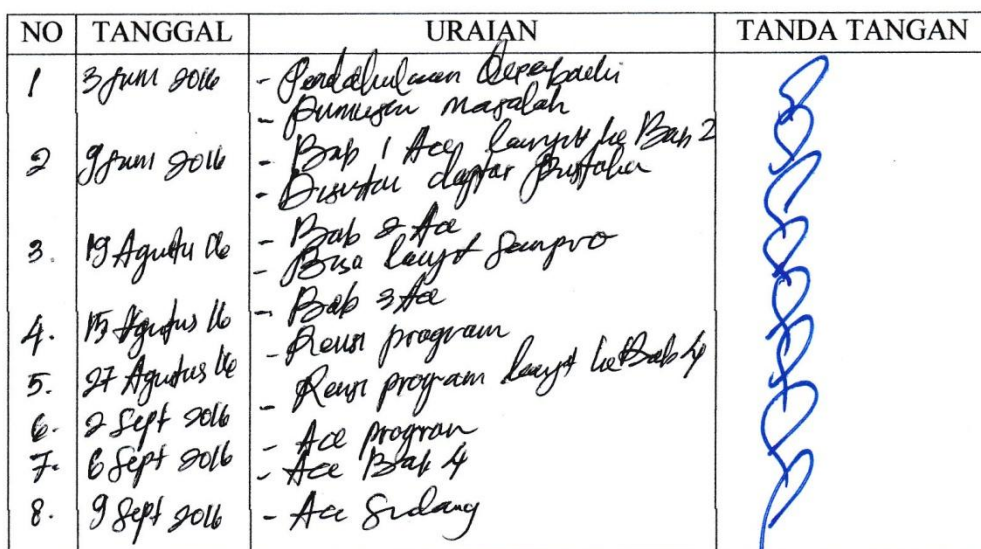 NO TANGGAL URAIAN TANDA TANGAN
1 3 Juni 2016 - Pendahuluan diperbaiki
- Rumusan masalah
2 9 Juni 2016 - Bab 1 Acc lanjut ke Bab 2
- Disertai daftar pustaka
3. 19 Agustu 16 - Bab 2 Acc
- Bisa lanjut Sempro
- Bab 3 Acc
4. 15 Agustus 16 - Revisi program
5. 27 Agustus 16 - Revisi program lanjut ke Bab 4
6. 2 Sept 2016 - Acc program
7. 6 Sept 2016 - Acc Bab 4
8. 9 Sept 2016 - Acc Sidang